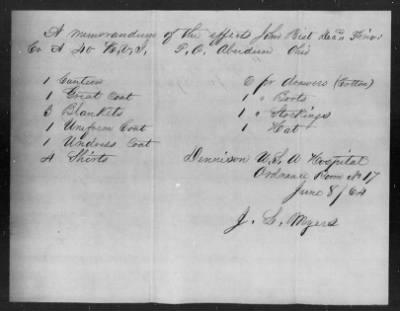 A memorandum of the effects John Bist Dec'd Priv.
Co A 40 K.V.I. P.O. Aberdeen Ohio
1 Canteen
1 Great Coat
3 Blankets
1 Uniform Coat
1 Undress Coat
4 Shirts
6 pr drawers (Cotton)
1 " Boots
1 " Stockings
1 Hat
Dennison U.S.A Hospital
Ordnance Room No 17
June 8/64
J. G. Myers